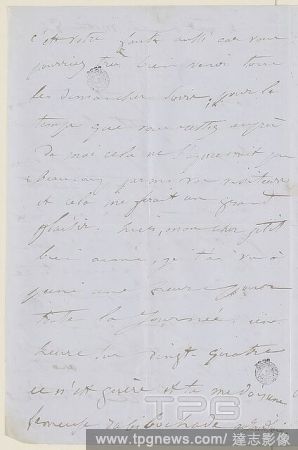 c'est votre faute aussi car vous
pourriez très bien venir tous
les dimanches soirs, pour le
temps que vous restez auprès
de moi cela ne
beaucoup parmi vos visiteurs
et cela me ferait un grand
plaisir. hier, mon cher petit
bien aimé, je t'ai vu à
peine une heure pour
toute la journée, une
heure sur vingt quatre
ce n'est guère et tu me dois une
fameuse
TPG
www.tpgnews.com/達志影像